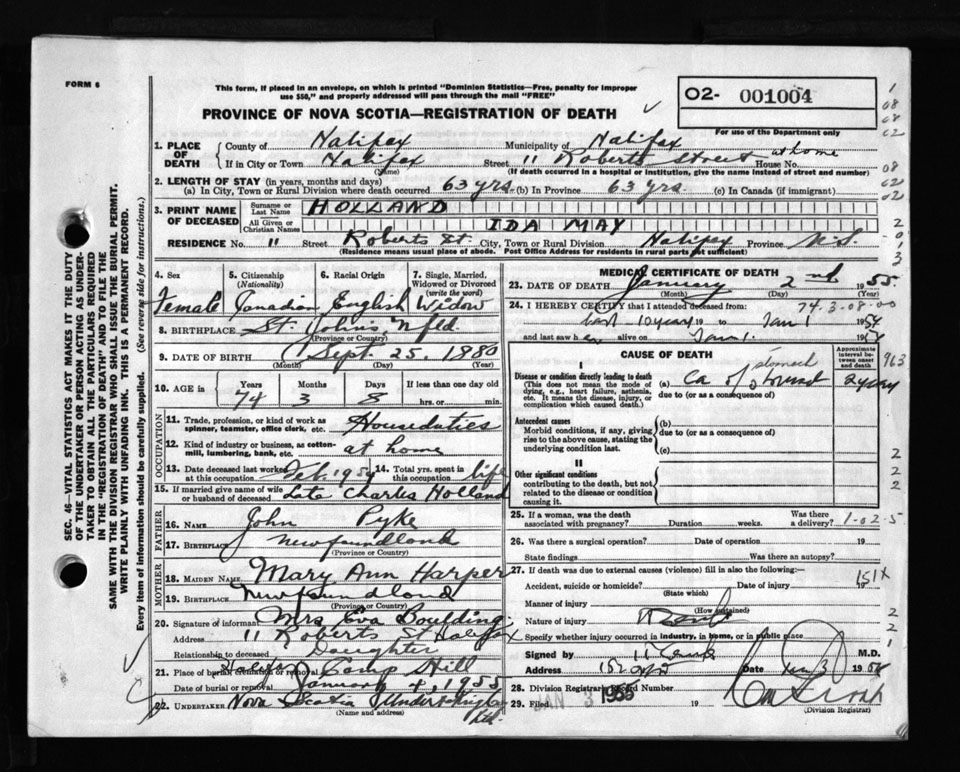 FORM 6
This form, if placed in an envelope, on which is printed "Dominion Statistics—Free, penalty for improper
use $50," and properly addressed will pass through the mail "FREE"
PROVINCE OF NOVA SCOTIA—REGISTRATION OF DEATH
O2- 001004
For use of the Department only
1. PLACE OF DEATH
County of Halifax Municipality of Halifax
If in City or Town Halifax Street 11 Roberts Street House No. at home
(Name) (If death occurred in a hospital or institution, give the name instead of street and number)
2. LENGTH OF STAY (in years, months and days)
(a) In City, Town or Rural Division where death occurred 63 yrs. (b) In Province 63 yrs. (c) In Canada (if immigrant)
3. PRINT NAME OF DECEASED
Surname or Last Name HOLLAND
All Given or Christian Names IDA MAY
RESIDENCE No. 11 Street Roberts St City, Town or Rural Division Halifax Province N.S.
(Residence means usual place of abode. Post Office Address for residents in rural parts not sufficient)
4. Sex 5. Citizenship (Nationality) 6. Racial Origin 7. Single, Married, Widowed or Divorced (write the word)
Female Canadian English Widow
8. BIRTHPLACE St. John's Nfld.
(Province or Country)
9. DATE OF BIRTH Sept. 25, 1880
(Month) (Day) (Year)
10. AGE in Years Months Days If less than one day old
74 3 8 hrs. or min.
OCCUPATION
11. Trade, profession, or kind of work as spinner, teamster, office clerk, etc. Houseduties
12. Kind of industry or business, as cotton-mill, lumbering, bank, etc. at home
13. Date deceased last worked at this occupation Feb. 195 14. Total yrs. spent in this occupation life
15. If married give name of wife or husband of deceased Late Charles Holland
FATHER
16. NAME John Pyke
17. BIRTHPLACE Newfoundland
(Province or Country)
MOTHER
18. MAIDEN NAME Mary Ann Harper
19. BIRTHPLACE Newfoundland
(Province or Country)
20. Signature of informant Mrs Eva Boulding
Address 11 Roberts St Halifax
Relationship to deceased Daughter
21. Place of burial cremation or removal Halifax Camp Hill
Date of burial or removal January 4, 1955
22. UNDERTAKER Nova Scotia Undertaking Co. Ltd.
(Name and address)
MEDICAL CERTIFICATE OF DEATH
23. DATE OF DEATH January 2nd 1955
(Month) (Day) (Year)
24. I HEREBY CERTIFY that I attended deceased from: 74.3.08.00
10 years 19 to Jan 1 1954
and last saw h er alive on Jan 1. 195
CAUSE OF DEATH
Approximate interval between onset and death
I
Disease or condition directly leading to death
(This does not mean the mode of dying, e.g., heart failure, asthenia, etc. It means the disease, injury, or complication which caused death.)
(a) Ca of stomach 2 years 963
due to (or as a consequence of)
Antecedent causes
Morbid conditions, if any, giving rise to the above cause, stating the underlying condition last.
(b)
due to (or as a consequence of)
(c)
II
Other significant conditions
contributing to the death, but not related to the disease or condition causing it.
25. If a woman, was the death associated with pregnancy? Duration weeks. Was there a delivery? 1-02-5
26. Was there a surgical operation? Date of operation 19
State findings Was there an autopsy?
27. If death was due to external causes (violence) fill in also the following:—
Accident, suicide or homicide? Date of injury 19 151X
(State which)
Manner of injury
(How sustained)
Nature of injury
Specify whether injury occurred in industry, in home, or in public place
Signed by M.D.
Address Date Jan 3 19
28. Division Registrar's Record Number
29. Filed JAN 3 1955 19
(Division Registrar)
SEC. 46—VITAL STATISTICS ACT MAKES IT THE DUTY
OF THE UNDERTAKER OR PERSON ACTING AS UNDER-
TAKER TO OBTAIN ALL THE PARTICULARS REQUIRED
IN THE "REGISTRATION OF DEATH" AND TO FILE THE
SAME WITH THE DIVISION REGISTRAR WHO SHALL ISSUE THE BURIAL PERMIT.
WRITE PLAINLY WITH UNFADING INK. THIS IS A PERMANENT RECORD.
Every item of information should be carefully supplied. (See reverse side for instructions.)